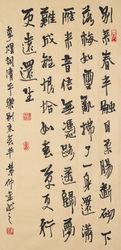 別來春半觸目柔腸斷砌下
落梅如雪亂拂了一身還滿
雁來音信無憑路遙歸夢
難成離恨恰如春草更行
更遠還生
李煜詞清平樂別來春半